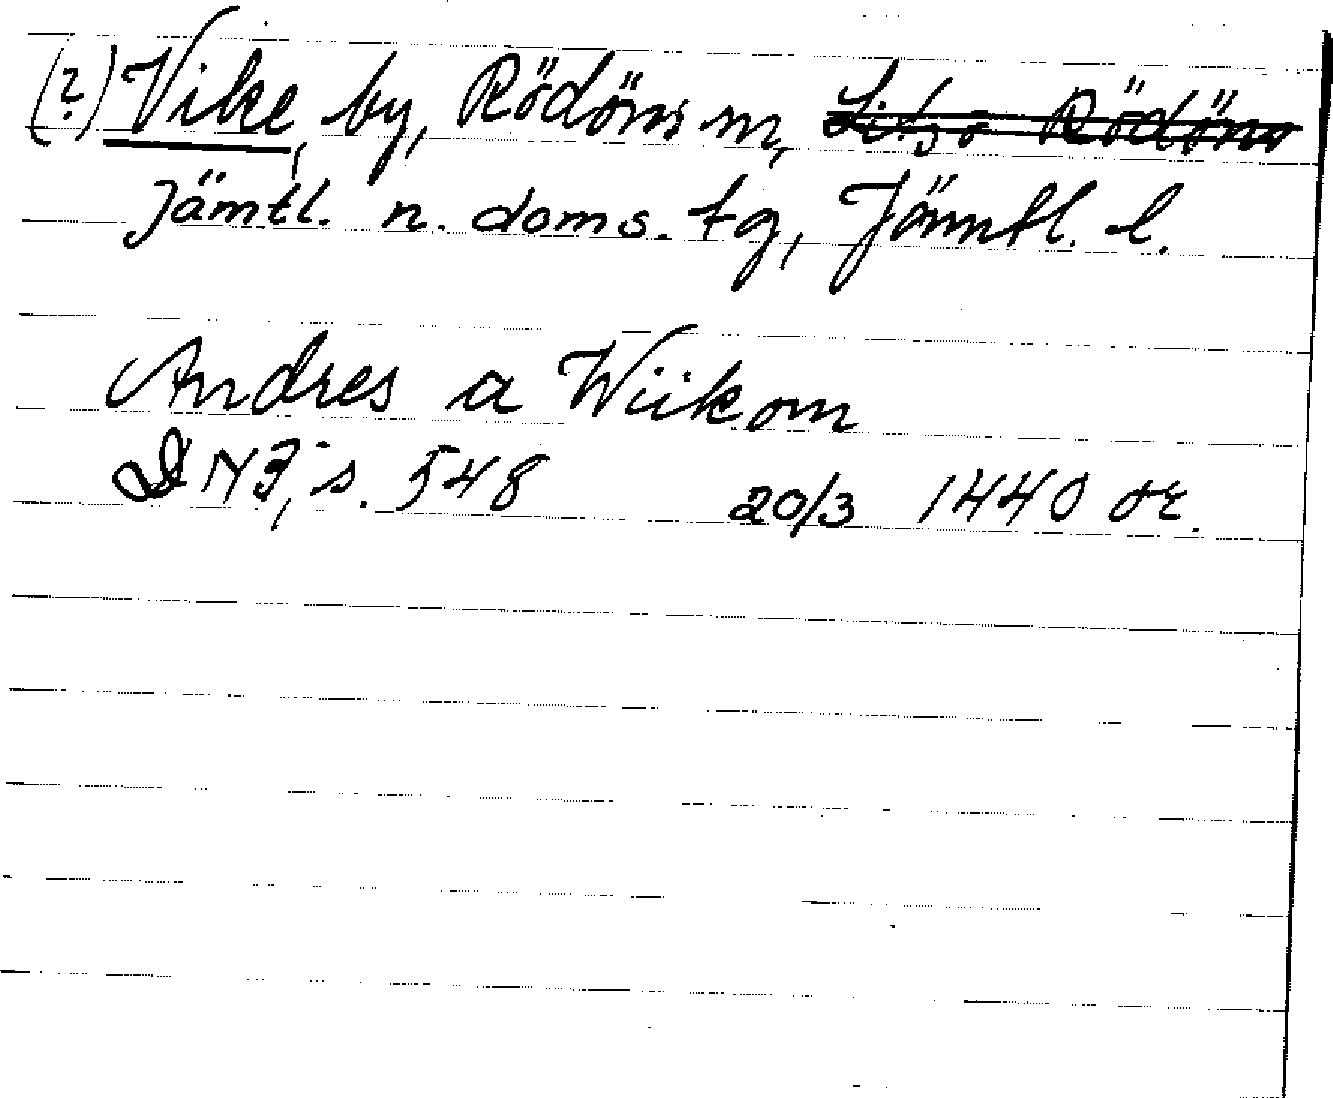 (?) Vike, by, Rödöns sn, Lits o Rödöns
Jämtl. n. doms. tg, Jämtl. l.
Andres a Wiikom
DN 3, s. 548 20/3 1440 or.